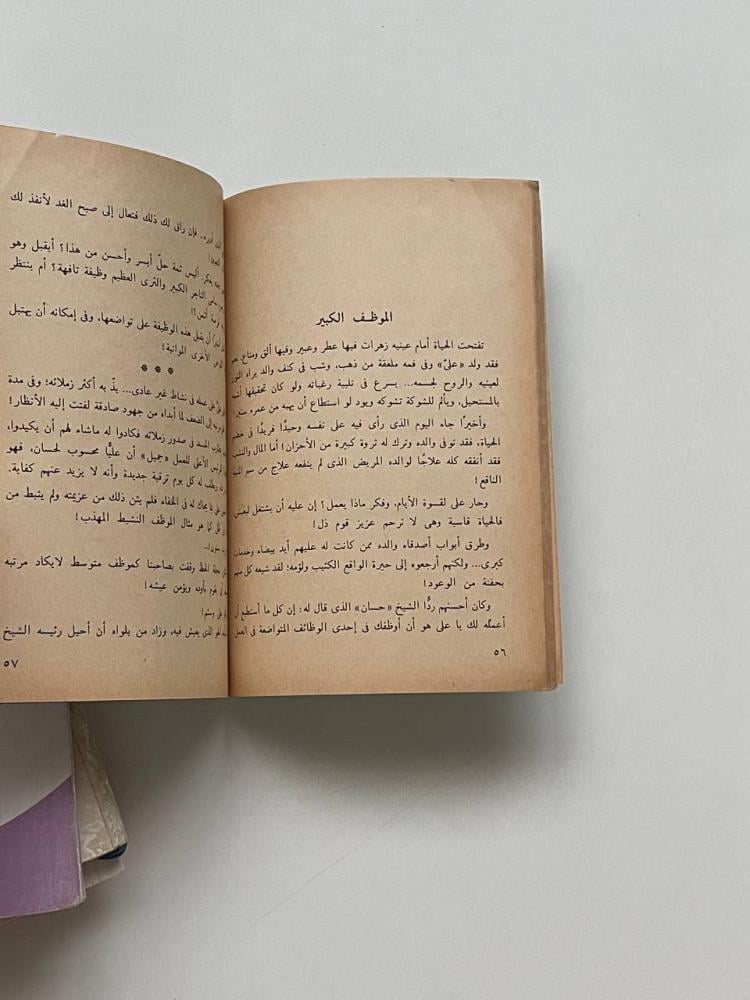 الموظف الكبير
تفتحت الحياة أمام عينيه زهرات فيها عطر وعبير وفيها ألق ومتاع،
فقد ولد «علىّ» وفى فمه ملعقة من ذهب، وشب فى كنف والد يراه النور
لعينيه والروح لجسمه... يسرع فى تلبية رغباته ولو كان تحقيقها أشبه
بالمستحيل، ويألم للشوكة تشوكه ويود لو استطاع أن يهبه من عمره سنين!
وأخيرًا جاء اليوم الذى رأى فيه على نفسه وحيدًا فريدًا فى خضم
الحياة، فقد توفى والده وترك له ثروة كبيرة من الأحزان! أما المال والنشب
فقد أنفقه كله علاجًا لوالده المريض الذى لم ينفعه علاج من سم
الناقع!
وحار على لقسوة الأيام، وفكر ماذا يعمل؟ إن عليه أن يشتغل ليعيش،
فالحياة قاسية وهى لا ترحم عزيز قوم ذل!
وطرق أبواب أصدقاء والده ممن كانت له عليهم أيد بيضاء وخدمات
كبرى... ولكنهم أرجعوه إلى حيرة الواقع الكئيب ولؤمه؛ لقد شيعه كل منهم
بحفنة من الوعود!
وكان أحسنهم ردًّا الشيخ «حسان» الذى قال له: إن كل ما أستطيع أن
أعمله لك يا على هو أن أوظفك فى إحدى الوظائف المتواضعة فى العمل
٥٦
فإن راق لك ذلك فتعال إلى صبح الغد لأنفذ لك
أليس ثمة حلّ أيسر وأحسن من هذا؟ أيقبل وهو
التاجر الكبير والثرى العظيم وظيفة تافهة؟ أم ينتظر
أن يقبل هذه الوظيفة على تواضعها، وفى إمكانه أن يهتبل
الأخرى المواتية!
* * *
على عمله فى نشاط غير عادى... بذّ به أكثر زملائه؛ وفى مدة
إلى الضعف لما أبداه من جهود صادقة لفتت إليه الأنظار!
فى صدور زملائه فكادوا له ماشاء لهم أن يكيدوا،
الأعلى للعمل «جميل» أن عليًّا محسوب لحسان، فهو
يطلب له كل يوم ترقية جديدة وأنه لا يزيد عنهم كفاية.
يحاك له فى الخفاء فلم يثن ذلك من عزيمته ولم يثبط من
كما هو مثال الموظف النشيط المهذب!
عجلة الحظ وقفت بصاحبنا كموظف متوسط لايكاد مرتبه
يقوم بأوده ويؤمن عيشه!
الذى يعيش فيه، وزاد من بلواه أن أحيل رئيسه الشيخ
٥٧